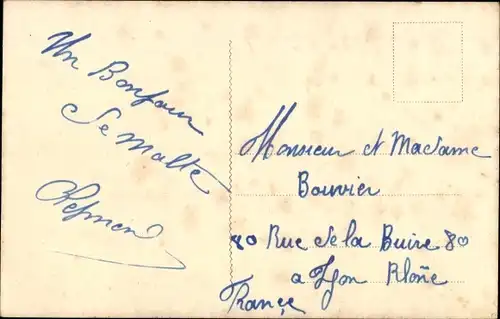 Un Bonjour
de Malte
Monsieur et Madame
Bouvier
80 Rue de la Buire 80
a Lyon Rhône
France